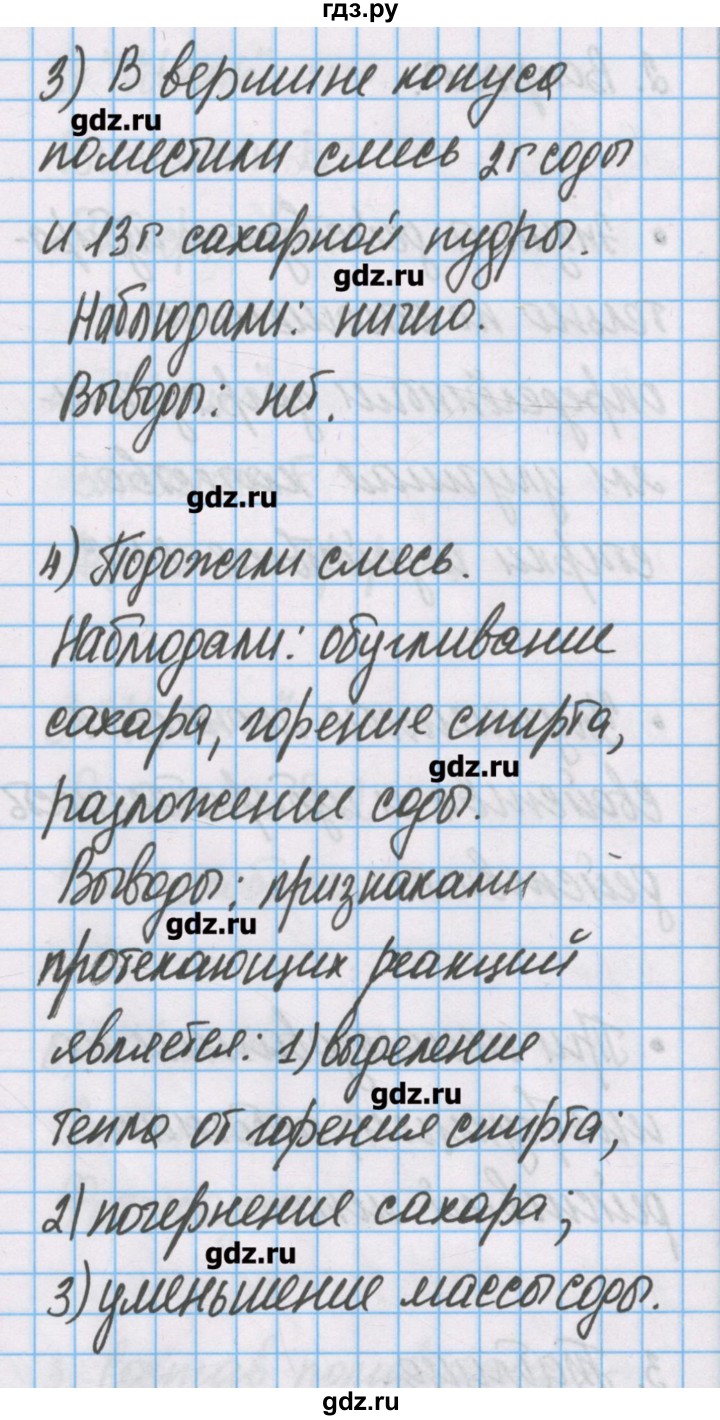 гдз.ру
3) В вершине конуса
gdz.ru
поместили смесь 2г соды
и 13г. сахарной пудры.
gdz.ru
Наблюдали: ничего.
Выводы: нет.
gdz.ru
4) Подожгли смесь.
Наблюдали: обугливание
сахара, горение спирта,
gdz.ru
разложение соды.
Выводы: признаками
gdz.ru
протекающих реакций
является: 1) выделение
gdz.ru
тепла от горения спирта;
2) почернение сахара;
gdz.ru
3) уменьшение массы соды.
gdz.ru